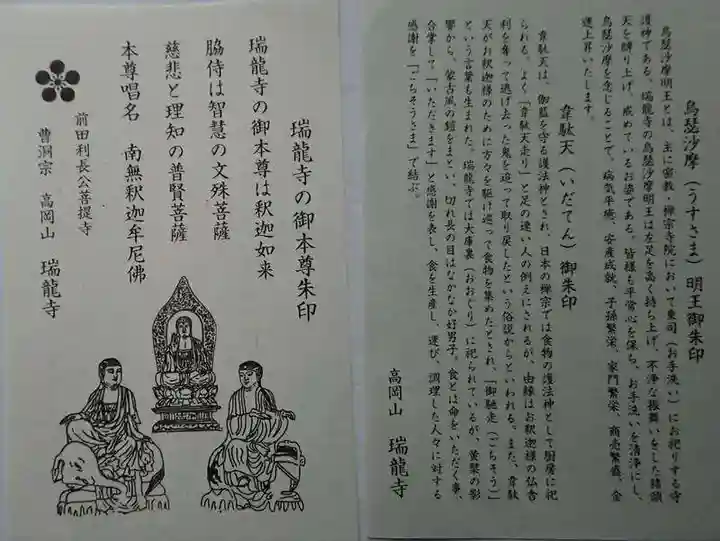 瑞龍寺の御本尊朱印
瑞龍寺の御本尊は釈迦如来
脇侍は智慧の文殊菩薩
慈悲と理知の普賢菩薩
本尊唱名　南無釈迦牟尼佛
前田利長公菩提寺
曹洞宗　高岡山　瑞龍寺
烏瑟沙摩（うすさま）明王御朱印
烏瑟沙摩明王とは、主に密教・禅宗寺院において東司（お手洗い）にお祀りする守
護神である。瑞龍寺の烏瑟沙摩明王は左足を高く持ち上げ、不浄な振舞いをした猪頭
天を縛り上げ、戒めているお姿である。皆様も平常心を保ち、お手洗いを清浄にし、
烏瑟沙摩を念じることで、病気平癒、安産成就、子孫繁栄、家門繁栄、商売繁盛、金
運上昇いたします。
韋駄天（いだてん）御朱印
韋駄天は、伽藍を守る護法神とされ、日本の禅宗では食物の護法神として厨房に祀
られる。よく「韋駄天走り」と足の速い人の例えにされるが、由縁はお釈迦様の仏舎
利を奪って逃げ去った鬼を追って取り戻したという俗説からといわれる。また、韋駄
天がお釈迦様のために方々を駆け巡って食物を集めたとされ、「御馳走（ごちそう）」
という言葉も生まれた。瑞龍寺では大庫裏（おおぐり）に祀られているが、黄檗の影
響から、蒙古風の鎧をまとい、切れ長の目はなかなか好男子。食とは命をいただく事、
合掌して「いただきます」と感謝を表し、食を生産し、運び、調理した人々に対する
感謝を「ごちそうさま」で結ぶ。
高岡山　瑞龍寺